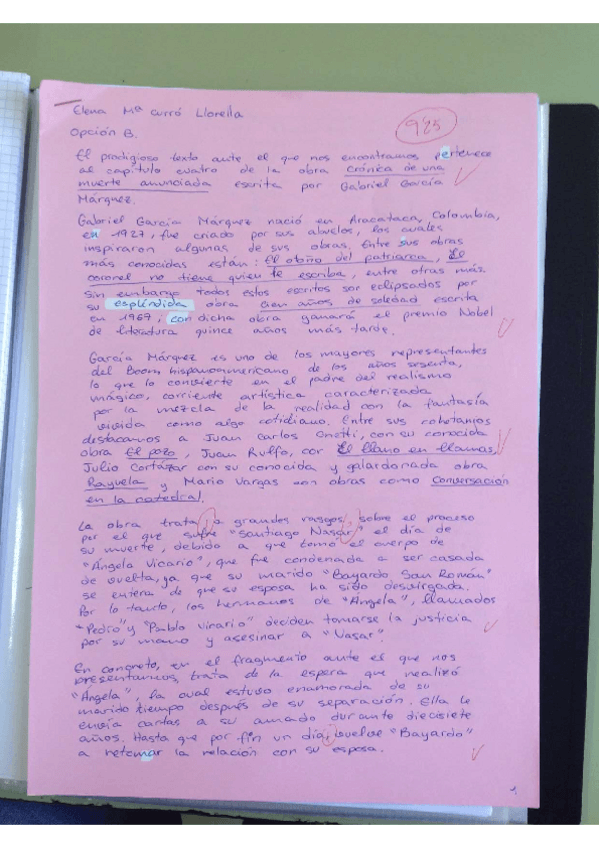 Elena Mª Curró Llorella
Opción B.
925
El prodigioso texto ante el que nos encontramos pertenece
al capítulo cuatro de la obra Crónica de una
muerte anunciada escrita por Gabriel García
Márquez.
Gabriel García Márquez nació en Aracataca, Colombia,
en 1927, fue criado por sus abuelos, los cuales
inspiraron algunas de sus obras. Entre sus obras
más conocidas están: El otoño del patriarca, El
coronel no tiene quien te escriba, entre otras más.
Sin embargo todos estos escritos son eclipsados por
su espléndida obra Cien años de soledad escrita
en 1969, con dicha obra ganará el premio Nobel
de literatura quince años más tarde.
García Márquez es uno de los mayores representantes
del Boom hispanoamericano de los años sesenta,
lo que lo convierte en el padre del realismo
mágico, corriente artística caracterizada
por la mezcla de la realidad con la fantasía
vivida como algo cotidiano. Entre sus cohetanios
destacamos a Juan Carlos Onetti, con su conocida
obra El pozo, Juan Rulfo, con El llano en llamas,
Julio Cortázar con su conocida y galardonada obra
Rayuela y Mario Vargas con obras como Conversación
en la catedral.
La obra trata a grandes rasgos, sobre el proceso
por el que sufre "Santiago Nasar" el día de
su muerte, debido a que tomó el cuerpo de
"Ángela Vicario", que fue condenada a ser casada
de vuelta, ya que su marido "Bayardo San Román"
se entera de que su esposa ha sido desvirgada.
Por lo tanto, los hermanos de "Ángela", llamados
"Pedro" y "Pablo Vicario" deciden tomarse la justicia
por su mano y asesinar a "Nasar".
En concreto, en el fragmento ante el que nos
presentamos, trata de la espera que realizó
"Ángela", la cual estuvo enamorada de su
marido tiempo después de su separación. Ella le
envía cartas a su amado durante diecisiete
años. Hasta que por fin un día, vuelve "Bayardo"
a retomar la relación con su esposa.
1